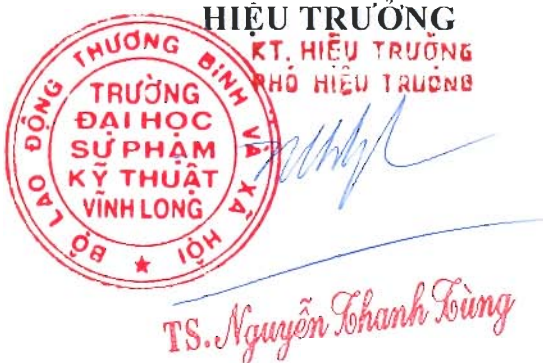 HIỆU TRƯỞNG
KT. HIỆU TRƯỞNG
PHÓ HIỆU TRƯỞNG
BỘ LAO ĐỘNG THƯƠNG BINH VÀ XÃ HỘI
TRƯỜNG
ĐẠI HỌC
SƯ PHẠM
KỸ THUẬT
VĨNH LONG
TS. Nguyễn Thanh Tùng